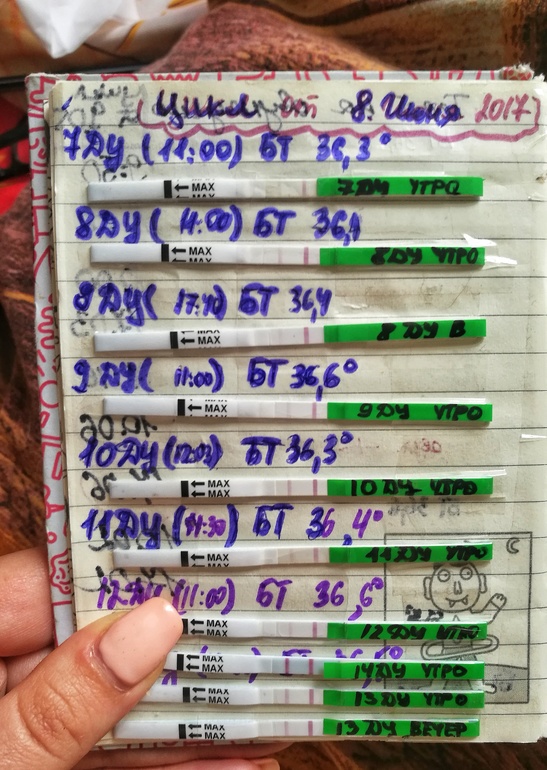 Цикл от 8. Июня 2017
7ДУ (11:00) БТ 36,3°
MAX
MAX
7ДУ УТРО
8ДУ ( 11:00) БТ 36,4
MAX
MAX
8ДУ УТРО
8ДУ( 17:40) БТ 36,4
MAX
MAX
8 ДУ В
9ДУ( 11:00) БТ 36,6°
MAX
MAX
9ДУ УТРО
10ДУ(12:02) БТ 36,3°
MAX
MAX
10ДУ УТРО
11ДУ (11:30) БТ 36,4°
MAX
MAX
11ДУ УТРО
12ДУ (11:00) БТ 36,6°
MAX
MAX
12ДУ УТРО
MAX
MAX
14ДУ УТРО
MAX
MAX
13ДУ УТРО
MAX
MAX
13 ДУ ВЕЧЕР